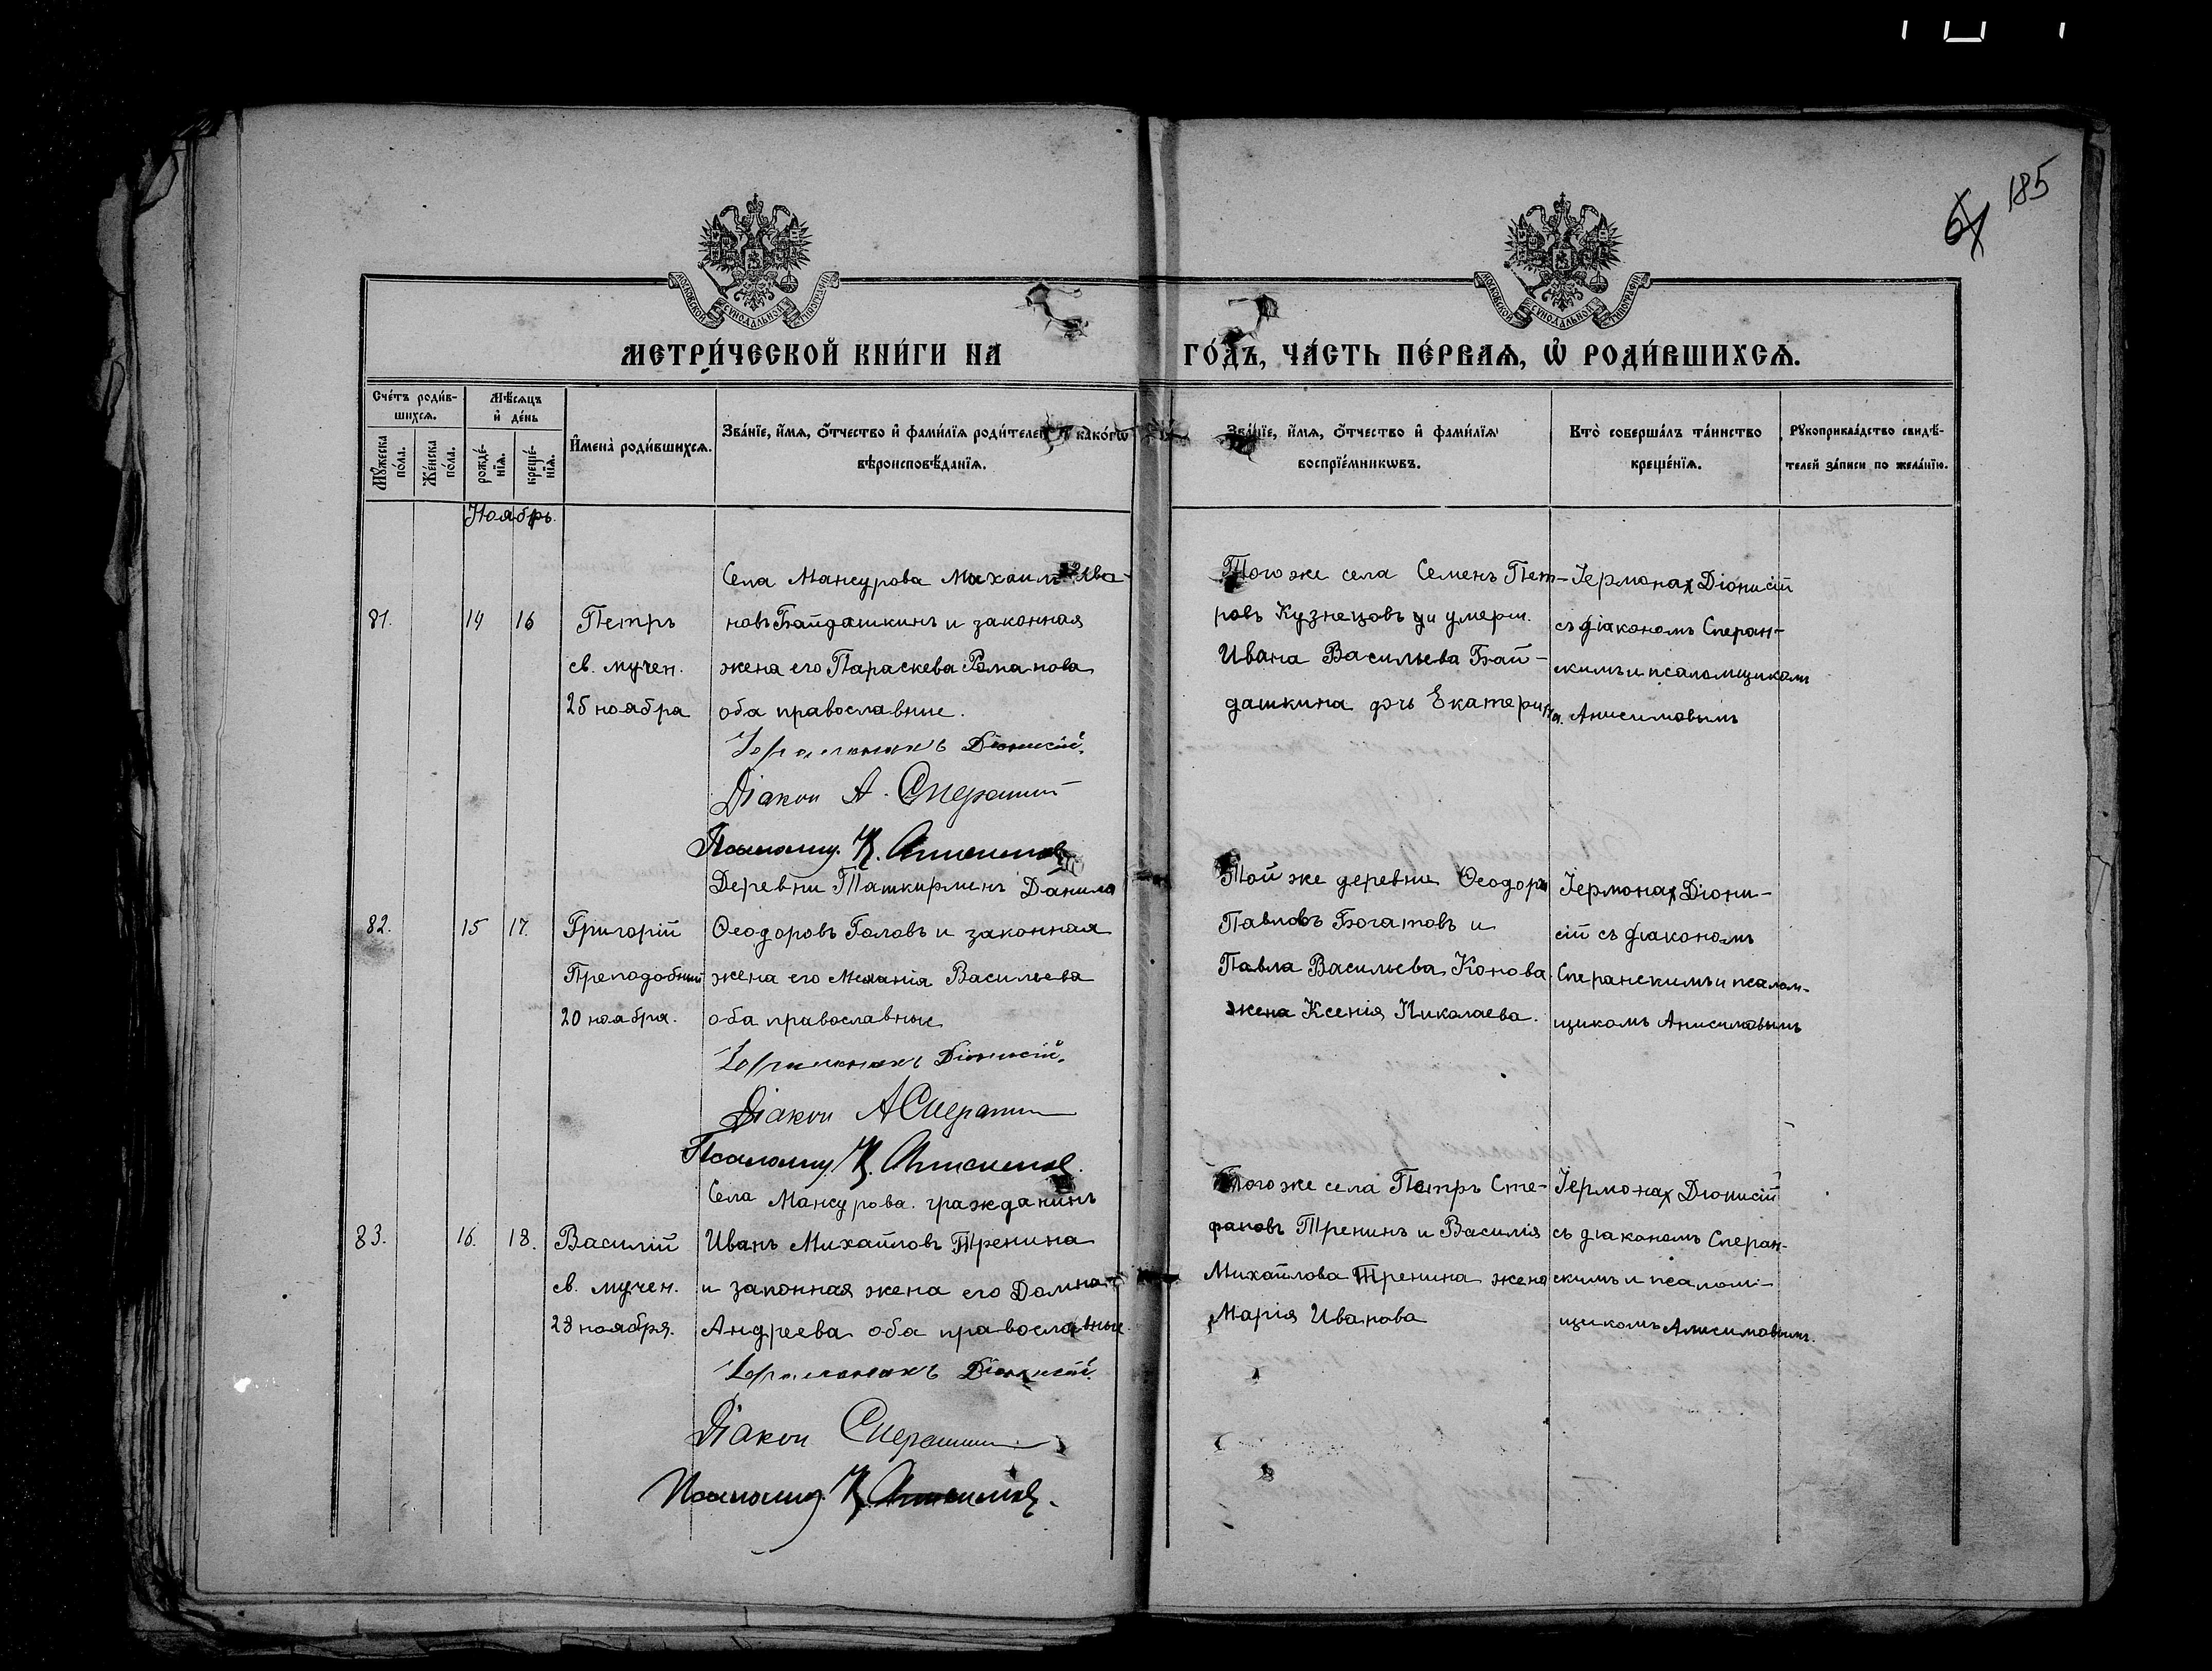 185
МОСКОВСКОЙ СѴНОДАЛЬНОЙ ТИПОГРАФІИ
МОСКОВСКОЙ СѴНОДАЛЬНОЙ ТИПОГРАФІИ
МЕТРИ́ЧЕСКОЙ КНИ́ГИ НА ГО́ДЪ, ЧА́СТЬ ПЕ́РВАѦ, Ѡ҆ РОДИ́ВШИХСѦ.
Сче́тъ роди́в-
шихсѧ.
Мꙋ́жеска по́ла.
Же́нска по́ла.
Мѣ́сѧцъ
и҆ де́нь
рожде́-
нїѧ.
креще́-
нїѧ.
И҆мена̀ роди́вшихсѧ.
Зва́нїе, и҆́мѧ, ѻ҆́тчество и҆ фами́лїѧ роди́телей и҆ како́гѡ
вѣроисповѣ́данїѧ.
Зва́нїе, и҆́мѧ, ѻ҆́тчество и҆ фами́лїѧ
воспрїе́мникѡвъ.
Кто̀ соверша́лъ та́инство
креще́нїѧ.
Рꙋкоприкла́дство свидѣ́-
телей за́писи по жела́нїю.
Ноябрь.
81.
14
16
Петръ
св. мучен.
25 ноября
Села Мансурова Михаилъ Ива-
новъ Байдашкинъ и законная
жена его Параскева Романова
оба православные.
Іеромонахъ Діонисій.
Діакон А. Сперанский
Псаломщ. К. Анисимов
Того же села Семенъ Пет-
ровъ Кузнецовъ и умерш.
Ивана Васильева Бай-
дашкина дочь Екатерина.
Іермонах Діонисій
съ діакономъ Сперан-
скимъ и псаломщикомъ
Анисимовымъ
82.
15
17.
Григорій
Преподобный
20 ноября.
Деревни Ташкирмень Данила
Ѳеодоровъ Головъ и законная
жена его Меланія Васильева
оба православные
Іеромонахъ Діонисій.
Діакон А Сперанский
Псаломщ. К. Анисимов.
Той же деревни Ѳеодоръ
Павловъ Богатовъ и
Павла Васильева Конова
жена Ксенія Николаева.
Іермонах Діони-
сій съ діакономъ
Сперанскимъ и псалом-
щикомъ Анисимовымъ
83.
16.
18.
Василій
св. мучен.
28 ноября.
Села Мансурова. гражданинъ
Иванъ Михайловъ Тренина
и законная жена его Домна
Андреева оба православные.
Іеромонахъ Діонисій.
Діакон Сперанский
Псаломщ. К. Анисимов.
Того же села Петръ Сте-
фановъ Тренинъ и Василія
Михайлова Тренина жена
Марія Иванова
Іермонах Діонисій
съ діакономъ Сперан-
скимъ и псалом-
щикомъ Анисимовымъ.